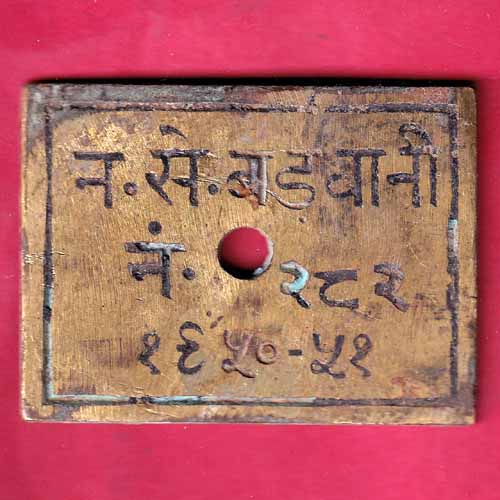 न. से. बड़वानी
नं. २८२
१६५०-५१